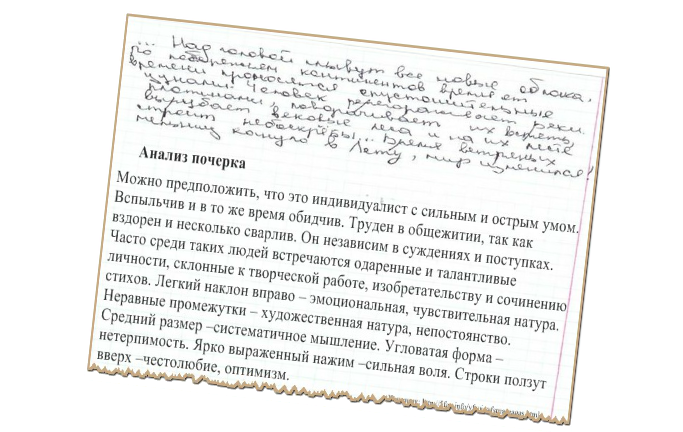 ... Над головой плывут все новые облака,
по побережьям континентов время от
времени проносятся опустошительные
цунами. Человек перегораживает реки
плотинами, поворачивает их вспять,
вырубает вековые леса и на их месте
строит небоскрёбы... Время ветряных
мельниц кануло в Лету, мир изменился!
Анализ почерка
Можно предположить, что это индивидуалист с сильным и острым умом.
Вспыльчив и в то же время обидчив. Труден в общежитии, так как
вздорен и несколько сварлив. Он независим в суждениях и поступках.
Часто среди таких людей встречаются одаренные и талантливые
личности, склонные к творческой работе, изобретательству и сочинению
стихов. Легкий наклон вправо – эмоциональная, чувствительная натура.
Неравные промежутки – художественная натура, непостоянство.
Средний размер –систематичное мышление. Угловатая форма –
нетерпимость. Ярко выраженный нажим –сильная воля. Строки ползут
вверх –честолюбие, оптимизм.